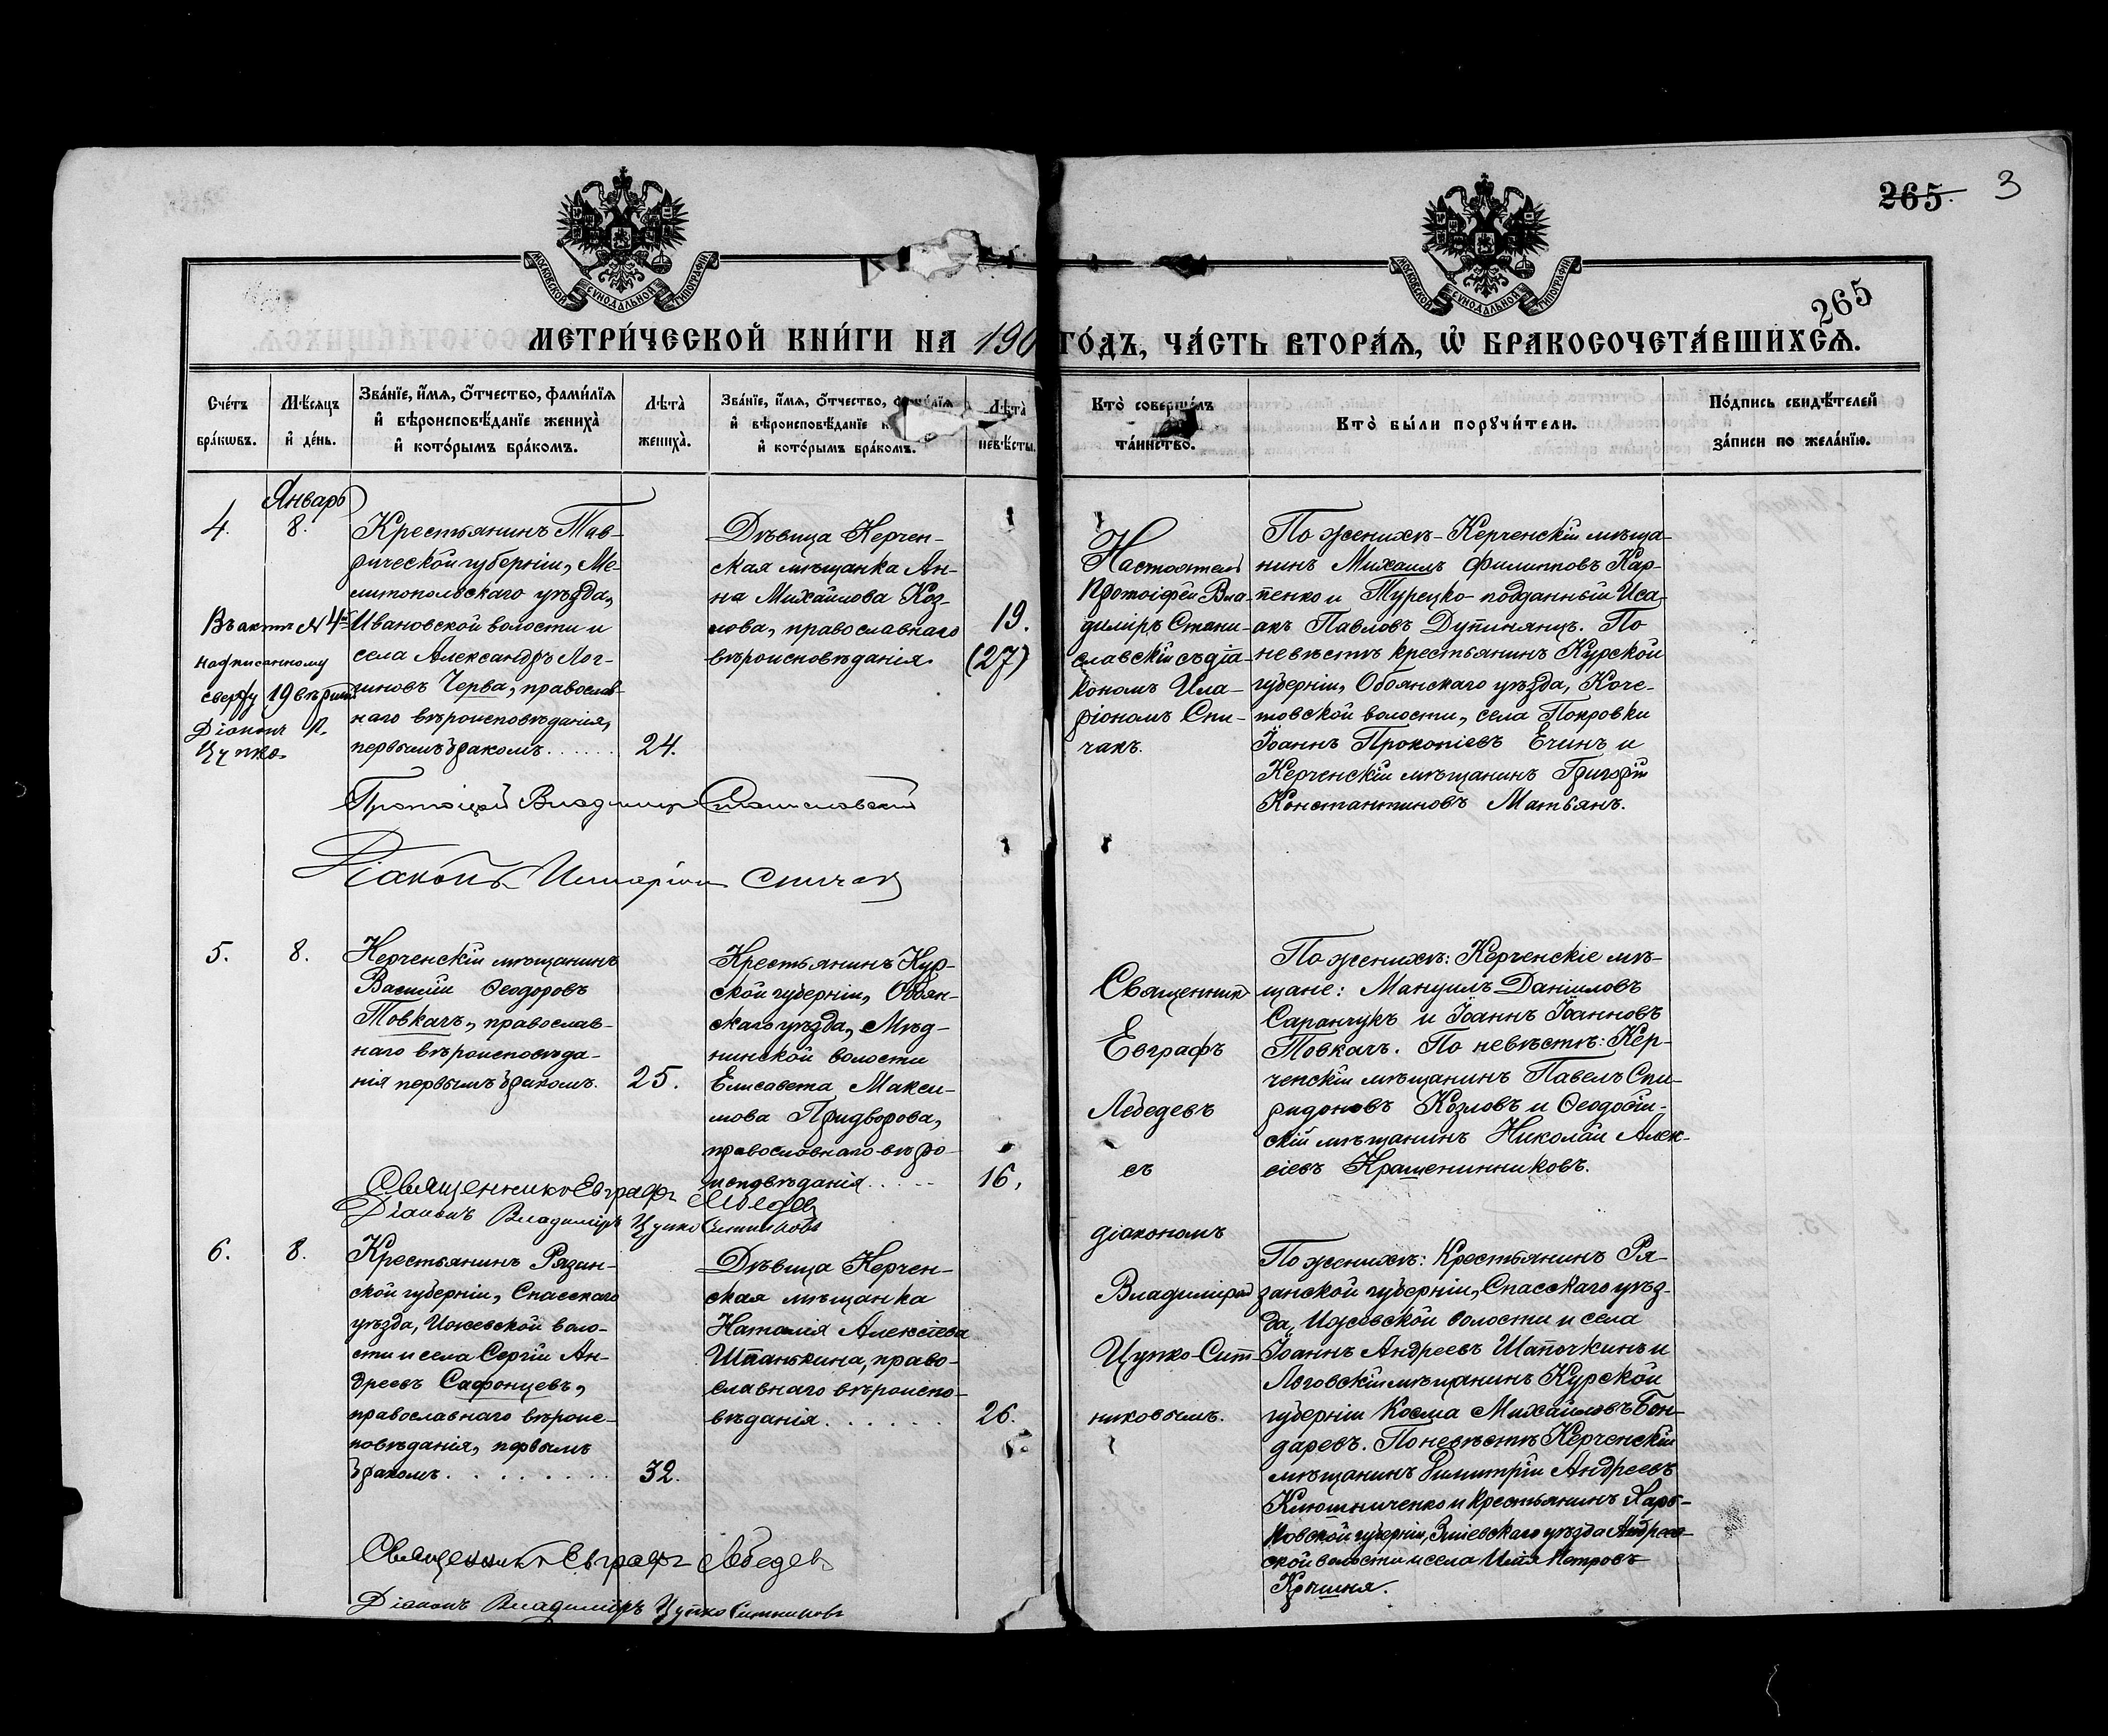 265. 3
МОСКОВСКОЙ СѴНОДАЛЬНОЙ ТИПОГРАФІИ
МОСКОВСКОЙ СѴНОДАЛЬНОЙ ТИПОГРАФІИ
265
МЕТРИ́ЧЕСКОЙ КНИ́ГИ НА 190 ГО́ДЪ, ЧА́СТЬ ВТОРА́Ѧ, Ѽ БРАКОСОЧЕТА́ВШИХСѦ.
Сче́тъ
бра́кѡвъ.
Мѣ́сѧцъ
и҆ де́нь.
Зва́нїе, и҆́мѧ, ѻ҆́тчество, фами́лїѧ
и҆ вѣроисповѣ́данїе жениха̀
и҆ кото́рымъ бра́комъ.
Лѣта̀
жениха̀.
Зва́нїе, и҆́мѧ, ѻ҆́тчество, фами́лїѧ
и҆ вѣроисповѣ́данїе
и҆ кото́рымъ бра́комъ.
Лѣта̀
невѣ́сты.
Кто̀ соверша́лъ
та́инство.
Кто̀ бы́ли порꙋчи́тели.
По́дпись свидѣ́телей
за́писи по жела́нїю.
Январь
4.
8.
Крестьянинъ Тав-
рической губерніи, Ме-
литопольскаго уѣзда,
Ивановской волости и
села Александръ Лог-
гиновъ Черва, православ-
наго вѣроисповѣданія,
первымъ бракомъ......
24.
Въ актѣ № 4й
надписанному
сверху 19 вѣрить
Діаконъ В.
Цупко.
Дѣвица Керчен-
ская мѣщанка Ан-
на Михайлова Коз-
лова, православнаго
вѣроисповѣданія.
19.
(27)
Настоятель
Протоіерей Вла-
диміръ Стани-
славскій съ діа-
кономъ Ила-
ріономъ Спи-
чакъ.
По женихѣ - Керченскій мѣща-
нинъ Михаилъ Филипповъ Кар-
пенко и Турецко-подданный Иса-
акъ Павловъ Дупинянцъ. По
невѣстѣ крестьянинъ Курской
губерніи, Обоянскаго уѣзда, Коче-
товской волости, села Покровки
Іоаннъ Прокопіевъ Ечинъ и
Керченскій мѣщанинъ Григорій
Константиновъ Матьянъ.
Протоіерей Владимиръ Станиславский
Діаконъ Иларіон Спичак
5.
8.
Керченскій мѣщанинъ
Василій Ѳеодоровъ
Товкачъ, православ-
наго вѣроисповѣда-
нія первымъ бракомъ.
25.
Крестьянинъ Кур-
ской губерніи, Обоян-
скаго уѣзда, Мѣд-
нинской волости
Елисавета Макси-
мова Придворова,
православнаго вѣро-
исповѣданія.....
16,
Священник
Евграфъ
Лебедевъ
съ
діакономъ
Владиміромъ
Цупко-Сит-
никовымъ.
По женихѣ: Керченскіе мѣ-
щане: Мануилъ Даніиловъ
Саранчукъ и Іоаннъ Іоанновъ
Товкачъ. По невѣстѣ: Кер-
ченскій мѣщанинъ Павелъ Спи-
ридоновъ Козловъ и Ѳеодосій-
скій мѣщанинъ Николай Алек-
сіевъ Крашенинниковъ.
Священникъ Евграфъ Лебедев
Діаконъ Владиміръ Цупко Ситниковъ
6.
8.
Крестьянинъ Рязан-
ской губерніи, Спасскаго
уѣзда, Ижевской воло-
сти и села Сергій Ан-
дреевъ Сафонцевъ,
православнаго вѣроис-
повѣданія, первымъ
бракомъ.........
32.
Дѣвица Керчен-
ская мѣщанка
Наталія Алексіева
Штанькина, право-
славнаго вѣроиспо-
вѣданія......
26.
По женихѣ: Крестьянинъ Ря-
занской губерніи, Спасскаго уѣз-
да, Ижевской волости и села
Іоаннъ Андреевъ Шапочкинъ и
Льговскій мѣщанинъ Курской
губерніи Косма Михайловъ Бон-
даревъ. По невѣстѣ Керченскій
мѣщанинъ Димитрій Андреевъ
Клюшниченко и крестьянинъ Харь-
ковской губерніи, Зміевскаго уѣзда Андреев-
ской волости и села Илія Петровъ
Крышня.
Священникъ Евграфъ Лебедевъ
Діаконъ Владиміръ Цупко Ситниковъ